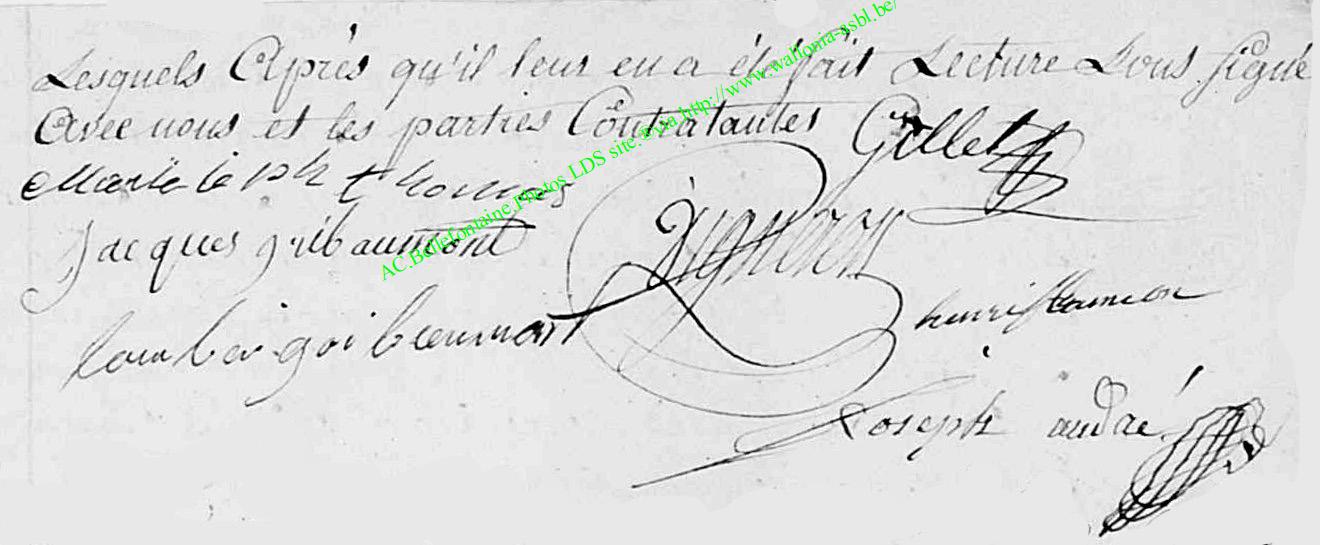 Lesquels Après qu'il leur en a été fait Lecture Lons signé
Avec nous et les parties Contratantes Gillet
Marie le ph thomas
Jacques gribaumont
lamber gribeumont
henri
Joseph andré
AC.Bellefontaine.Photos LDS site: via http://www.wallonia-asbl.be/